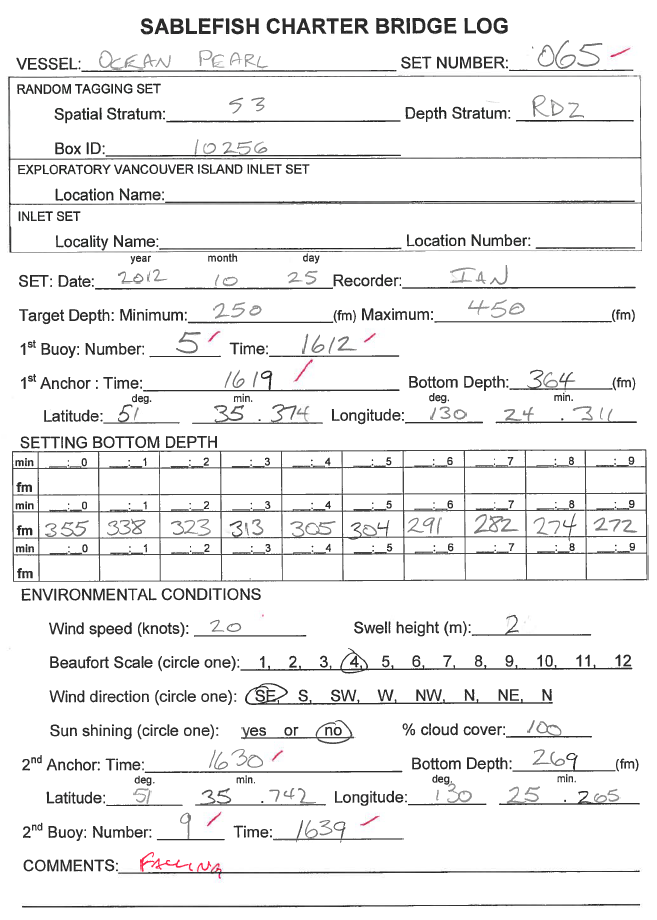 SABLEFISH CHARTER BRIDGE LOG
VESSEL: OCEAN PEARL SET NUMBER: 065
RANDOM TAGGING SET
Spatial Stratum: 53 Depth Stratum: RD2
Box ID: 10256
EXPLORATORY VANCOUVER ISLAND INLET SET
Location Name:
INLET SET
Locality Name: Location Number:
year month day
SET: Date: 2012 10 25 Recorder: IAN
Target Depth: Minimum: 250 (fm) Maximum: 450 (fm)
1st Buoy: Number: 5 Time: 1612
1st Anchor : Time: 1619 Bottom Depth: 364 (fm)
deg. min. deg. min.
Latitude: 51 35 . 374 Longitude: 130 24 . 311
SETTING BOTTOM DEPTH
min __:__0 __:__1 __:__2 __:__3 __:__4 __:__5 __:__6 __:__7 __:__8 __:__9
fm
min __:__0 __:__1 __:__2 __:__3 __:__4 __:__5 __:__6 __:__7 __:__8 __:__9
fm 355 338 323 313 305 304 291 282 274 272
min __:__0 __:__1 __:__2 __:__3 __:__4 __:__5 __:__6 __:__7 __:__8 __:__9
fm
ENVIRONMENTAL CONDITIONS
Wind speed (knots): 20 Swell height (m): 2
Beaufort Scale (circle one): 1, 2, 3, 4, 5, 6, 7, 8, 9, 10, 11, 12
Wind direction (circle one): SE, S, SW, W, NW, N, NE, N
Sun shining (circle one): yes or no % cloud cover: 100
2nd Anchor: Time: 1630 Bottom Depth: 269 (fm)
deg. min. deg. min.
Latitude: 51 35 .742 Longitude: 130 25 . 265
2nd Buoy: Number: 9 Time: 1639
COMMENTS: FALLING